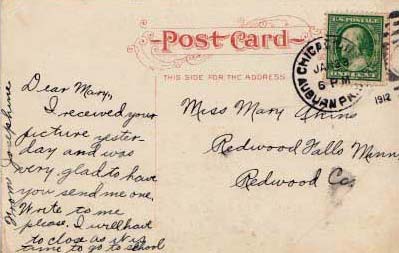 Post Card
THIS SIDE FOR THE ADDRESS
U.S. POSTAGE
CHICAGO, ILL
JAN
6 PM
AUBURN PK.
1912
Dear Mary,
I received your
picture yester-
day and was
very glad to have
you send me one.
Write to me
please. I will have
to close as it is
time to go to school
From Josephine
Miss Mary
Redwood Falls Minn
Redwood Co.